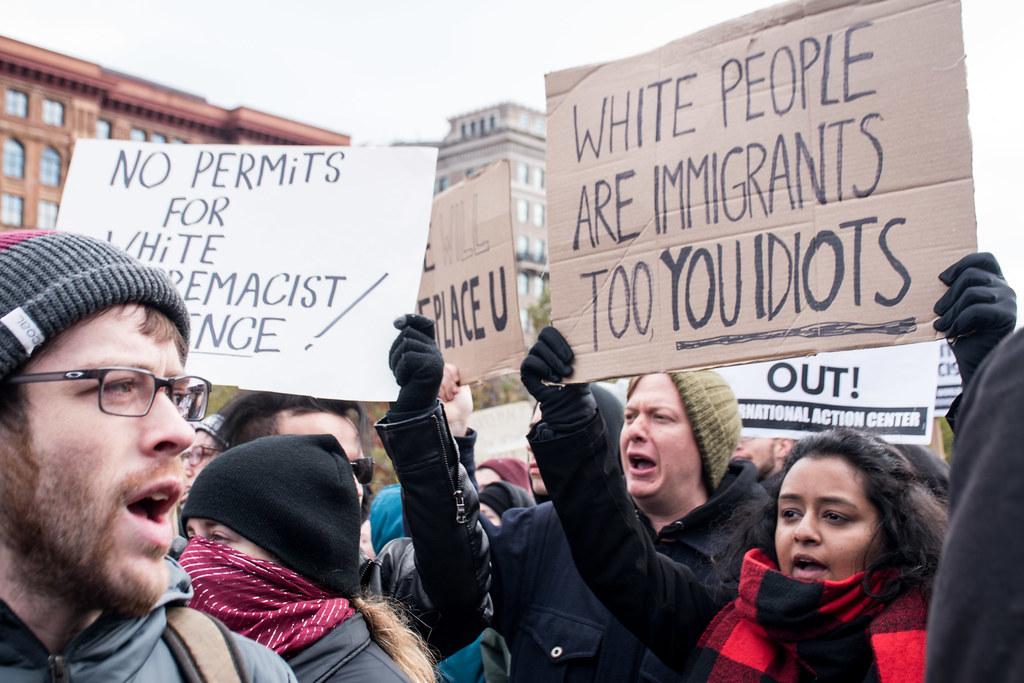 NO PERMiTS
FOR
WHiTE
REMACIST
ENCE!
WILL
PLACE U
WHITE PEOPLE
ARE IMMIGRANTS
TOO, YOU IDIOTS
OUT!
RNATIONAL ACTION CENTER